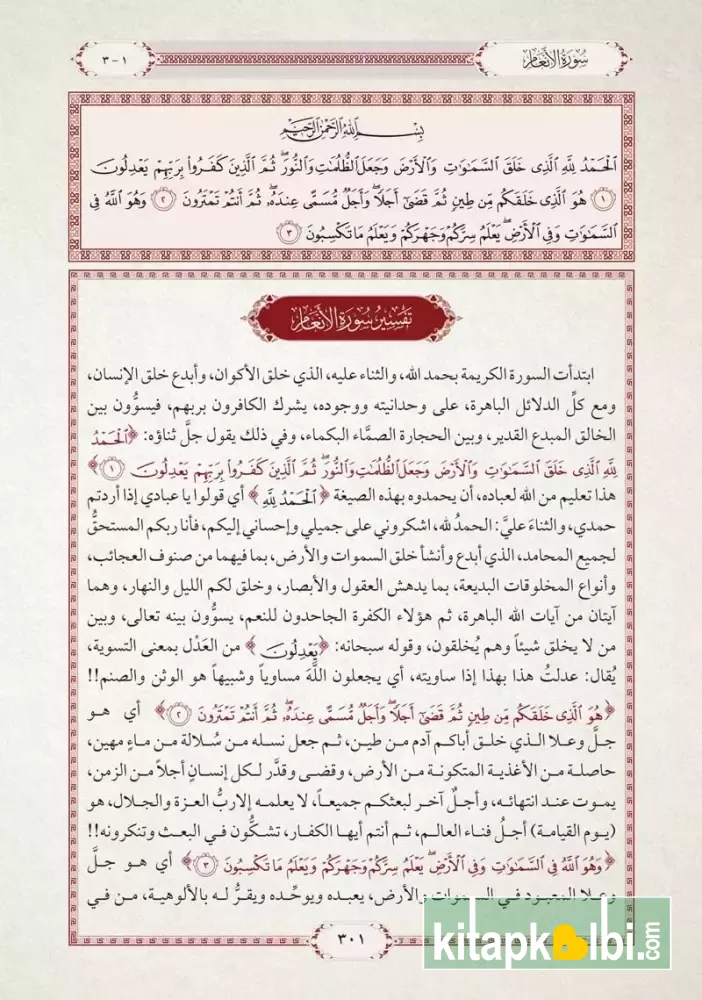 سُورَةُ الأَنْعَامِ
١ - ٣
بِسْمِ اللَّهِ الرَّحْمَٰنِ الرَّحِيمِ
الْحَمْدُ لِلَّهِ الَّذِي خَلَقَ السَّمَاوَاتِ وَالْأَرْضَ وَجَعَلَ الظُّلُمَاتِ وَالنُّورَ ۖ ثُمَّ الَّذِينَ كَفَرُوا بِرَبِّهِمْ يَعْدِلُونَ
١ هُوَ الَّذِي خَلَقَكُم مِّن طِينٍ ثُمَّ قَضَىٰ أَجَلًا ۖ وَأَجَلٌ مُّسَمًّى عِندَهُ ۖ ثُمَّ أَنتُمْ تَمْتَرُونَ ٢ وَهُوَ اللَّهُ فِي
السَّمَاوَاتِ وَفِي الْأَرْضِ ۖ يَعْلَمُ سِرَّكُمْ وَجَهْرَكُمْ وَيَعْلَمُ مَا تَكْسِبُونَ ٣
تَفْسِيرُ سُورَةِ الأَنْعَامِ
ابتدأت السورة الكريمة بحمد الله، والثناء عليه، الذي خلق الأكوان، وأبدع خلق الإنسان،
ومع كلِّ الدلائل الباهرة، على وحدانيته ووجوده، يشرك الكافرون بربهم، فيسوُّون بين
الخالق المبدع القدير، وبين الحجارة الصمَّاء البكماء، وفي ذلك يقول جلَّ ثناؤه: ﴿الْحَمْدُ
لِلَّهِ الَّذِي خَلَقَ السَّمَاوَاتِ وَالْأَرْضَ وَجَعَلَ الظُّلُمَاتِ وَالنُّورَ ۖ ثُمَّ الَّذِينَ كَفَرُوا بِرَبِّهِمْ يَعْدِلُونَ ١﴾
هذا تعليم من الله لعباده، أن يحمدوه بهذه الصيغة ﴿الْحَمْدُ لِلَّهِ﴾ أي قولوا يا عبادي إذا أردتم
حمدي، والثناءَ عليَّ: الحمدُ لله، اشكروني على جميلي وإحساني إليكم، فأنا ربكم المستحقُّ
لجميع المحامد، الذي أبدع وأنشأ خلق السموات والأرض، بما فيهما من صنوف العجائب،
وأنواع المخلوقات البديعة، بما يدهش العقول والأبصار، وخلق لكم الليل والنهار، وهما
آيتان من آيات الله الباهرة، ثم هؤلاء الكفرة الجاحدون للنعم، يسوُّون بينه تعالى، وبين
من لا يخلق شيئاً وهم يُخلقون، وقوله سبحانه: ﴿يَعْدِلُونَ﴾ من العَدْل بمعنى التسوية،
يُقال: عدلتُ هذا بهذا إذا ساويته، أي يجعلون اللَّهَ مساوياً وشبيهاً هو الوثن والصنم!!
﴿هُوَ الَّذِي خَلَقَكُم مِّن طِينٍ ثُمَّ قَضَىٰ أَجَلًا ۖ وَأَجَلٌ مُّسَمًّى عِندَهُ ۖ ثُمَّ أَنتُمْ تَمْتَرُونَ ٢﴾ أي هو
جلَّ وعلا الذي خلق أباكم آدم من طين، ثم جعل نسله من سُلالة من ماءٍ مهين،
حاصلة من الأغذية المتكونة من الأرض، وقضى وقدَّر لكل إنسانٍ أجلاً من الزمن،
يموت عند انتهائه، وأجلٌ آخر لبعثكم جميعاً، لا يعلمه إلا ربُّ العزة والجلال، هو
(يوم القيامة) أجلُ فناء العالم، ثم أنتم أيها الكفار، تشكُّون في البعث وتنكرونه!!
﴿وَهُوَ اللَّهُ فِي السَّمَاوَاتِ وَفِي الْأَرْضِ ۖ يَعْلَمُ سِرَّكُمْ وَجَهْرَكُمْ وَيَعْلَمُ مَا تَكْسِبُونَ ٣﴾ أي هو جلَّ
وعلا المعبود في السموات والأرض، يعبده ويوحِّده ويقرُّ له بالألوهية، من في
٣٠١
kitapkalbi.com